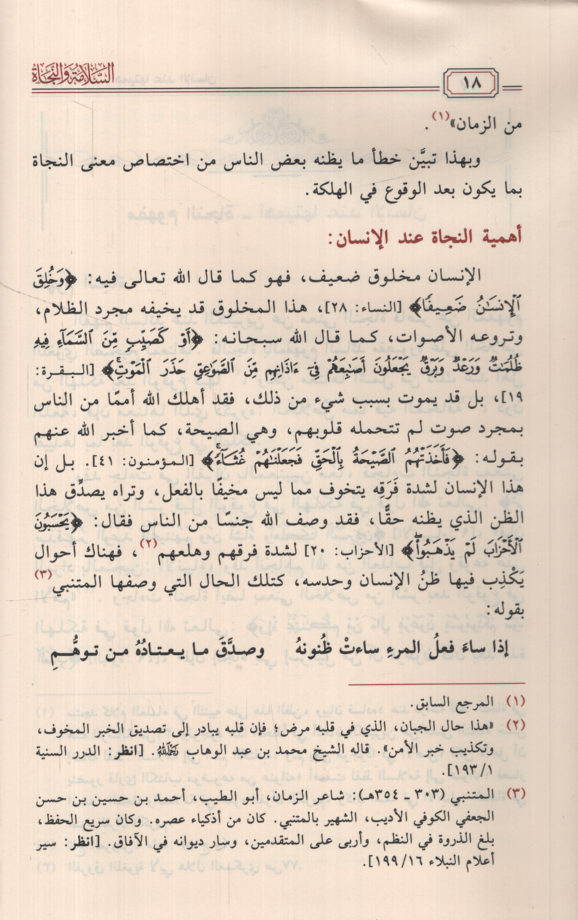 السلامة والنجاة
١٨
من الزمان»(١).
وبهذا تبيَّن خطأ ما يظنه بعض الناس من اختصاص معنى النجاة
بما يكون بعد الوقوع في الهلكة.
أهمية النجاة عند الإنسان:
الإنسان مخلوق ضعيف، فهو كما قال الله تعالى فيه: ﴿وَخُلِقَ
ٱلْإِنسَٰنُ ضَعِيفًا﴾ [النساء: ٢٨]، هذا المخلوق قد يخيفه مجرد الظلام،
وتروعه الأصوات، كما قال الله سبحانه: ﴿أَوْ كَصَيِّبٍ مِّنَ ٱلسَّمَآءِ فِيهِ
ظُلُمَٰتٌ وَرَعْدٌ وَبَرْقٌ يَجْعَلُونَ أَصَٰبِعَهُمْ فِىٓ ءَاذَانِهِم مِّنَ ٱلصَّوَٰعِقِ حَذَرَ ٱلْمَوْتِ﴾ [البقرة:
١٩]، بل قد يموت بسبب شيء من ذلك، فقد أهلك الله أممًا من الناس
بمجرد صوت لم تتحمله قلوبهم، وهي الصيحة، كما أخبر الله عنهم
بقوله: ﴿فَأَخَذَتْهُمُ ٱلصَّيْحَةُ بِٱلْحَقِّ فَجَعَلْنَٰهُمْ غُثَآءً﴾ [المؤمنون: ٤١]. بل إن
هذا الإنسان لشدة فَرَقِه يتخوف مما ليس مخيفًا بالفعل، وتراه يصدِّق هذا
الظن الذي يظنه حقًّا، فقد وصف الله جنسًا من الناس فقال: ﴿يَحْسَبُونَ
ٱلْأَحْزَابَ لَمْ يَذْهَبُوا۟﴾ [الأحزاب: ٢٠] لشدة فرقهم وهلعهم(٢)، فهناك أحوال
يَكْذِب فيها ظنُّ الإنسان وحدسه، كتلك الحال التي وصفها المتنبي(٣)
بقوله:
إذا ساءَ فعلُ المرءِ ساءتْ ظُنونهُ وصدَّقَ ما يعتادُهُ من توهُّمِ
(١) المرجع السابق.
(٢) «هذا حال الجبان، الذي في قلبه مرض؛ فإن قلبه يبادر إلى تصديق الخبر المخوف،
وتكذيب خبر الأمن». قاله الشيخ محمد بن عبد الوهاب رحمه الله. [انظر: الدرر السنية
١/١٩٣].
(٣) المتنبي (٣٠٣ ـ ٣٥٤هـ): شاعر الزمان، أبو الطيب، أحمد بن حسين بن حسن
الجعفي الكوفي الأديب، الشهير بالمتنبي. كان من أذكياء عصره. وكان سريع الحفظ،
بلغ الذروة في النظم، وأربى على المتقدمين، وسار ديوانه في الآفاق. [انظر: سير
أعلام النبلاء ١٦/١٩٩].